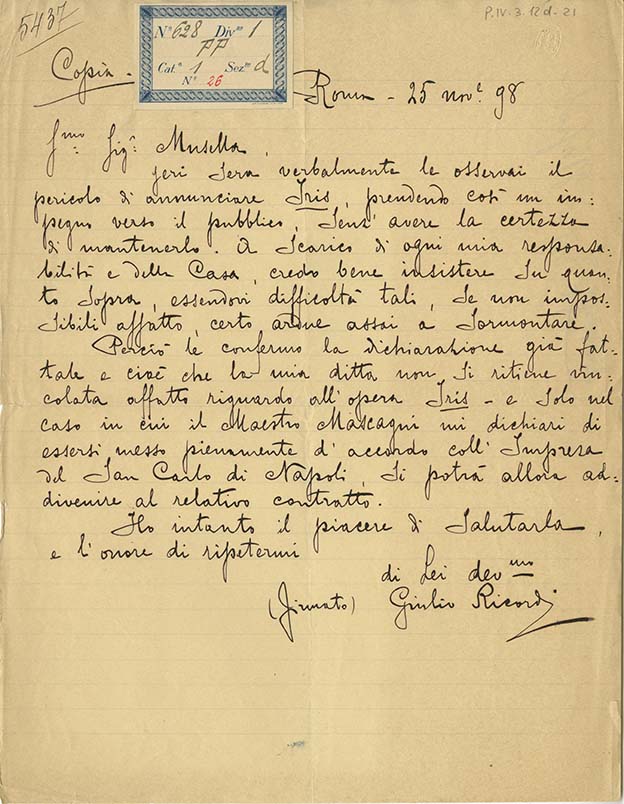 5437
P.IV.3.12d-21
N° 628 Divne 1
PP
Cat.a 1 Sez.ne d
N° 26
Copia -
Roma - 25 nov.e 98
Jmo: Sigr: Musella,
jeri sera verbalmente le osservai il
pericolo di annunciare Iris, prendendo così un im=
pegno verso il pubblico, senz' avere la certezza
di mantenerlo. A scarico di ogni mia responsa=
bilità e della Casa, credo bene insistere su quan=
to sopra, essendovi difficoltà tali, se non impos=
sibili affatto, certo ardue assai a sormontare.
Perciò le confermo la dichiarazione già fat=
tale e cioè che la mia ditta non si ritiene vin=
colata affatto riguardo all'opera Iris - e solo nel
caso in cui il Maestro Mascagni mi dichiari di
essersi messo pienamente d'accordo coll' Impresa
del San Carlo di Napoli, si potrà allora ad=
divenire al relativo contratto.
Ho intanto il piacere di salutarla,
e l'onore di ripetermi
di Lei devmo
(firmato) Giulio Ricordi